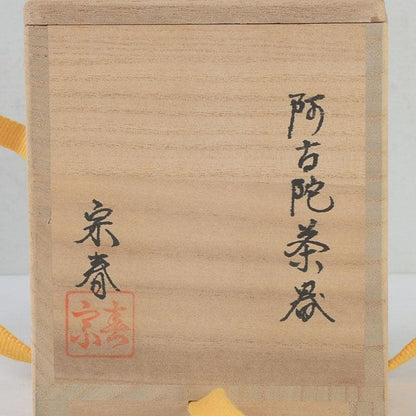 阿古陀茶器
宗春
宗春